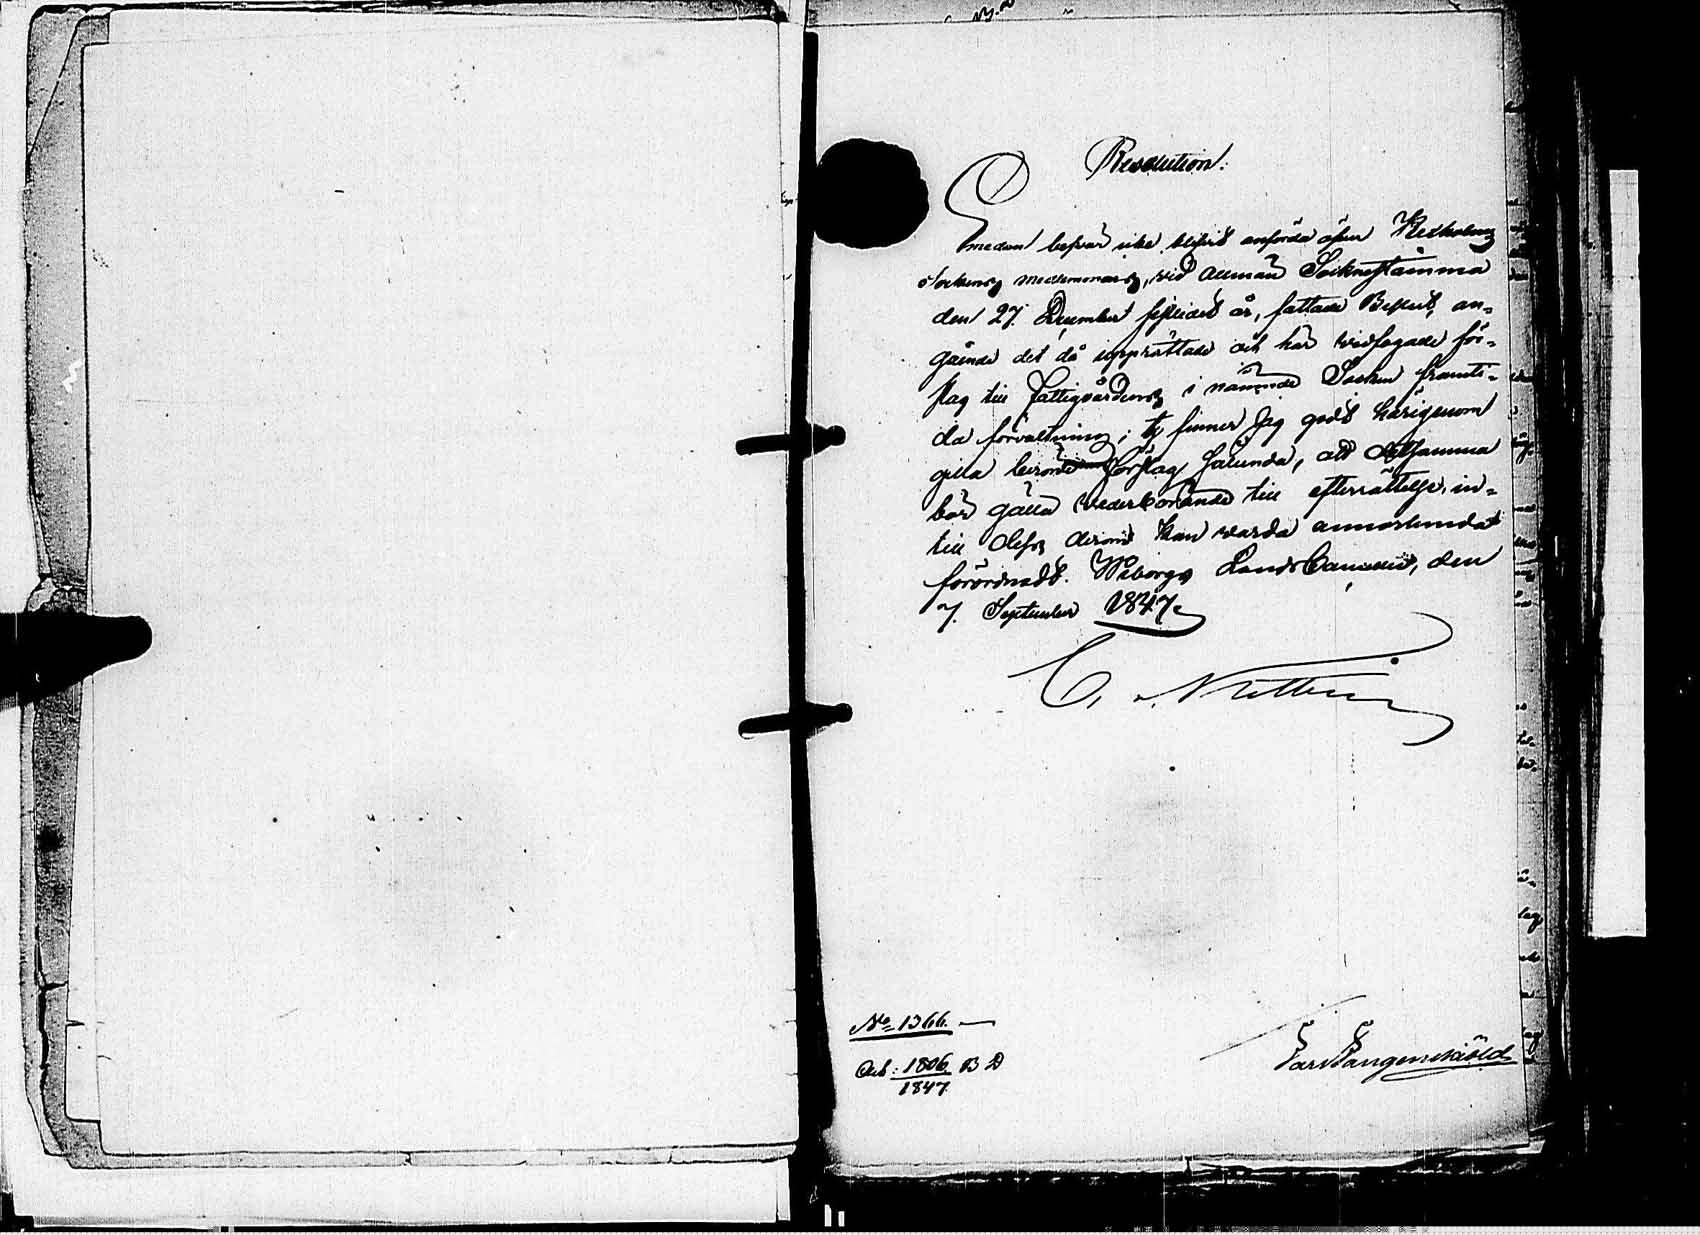 Resolution.
Emedan besvär icke blifvit anförda öfver Kexholms
Sockens medlemmars, vid allmän Sockenstämma
den 27 December sistledet år, fattade Beslut, an-
gående det då upprättade och här vidfogade för-
slag till fattigvårdens i nämnde Socken framti-
da förvaltning; ty finner Jag godt härigenom
gilla berörde förslag sålunda, att detsamma
bör gälla vederbörande till efterrättelse, in-
till dess derom kan varda annorlunda
förordnadt. Wiborgs Lands Cancellie, den
7 September 1847.
No 1366.
Act: 1806 B D
1847